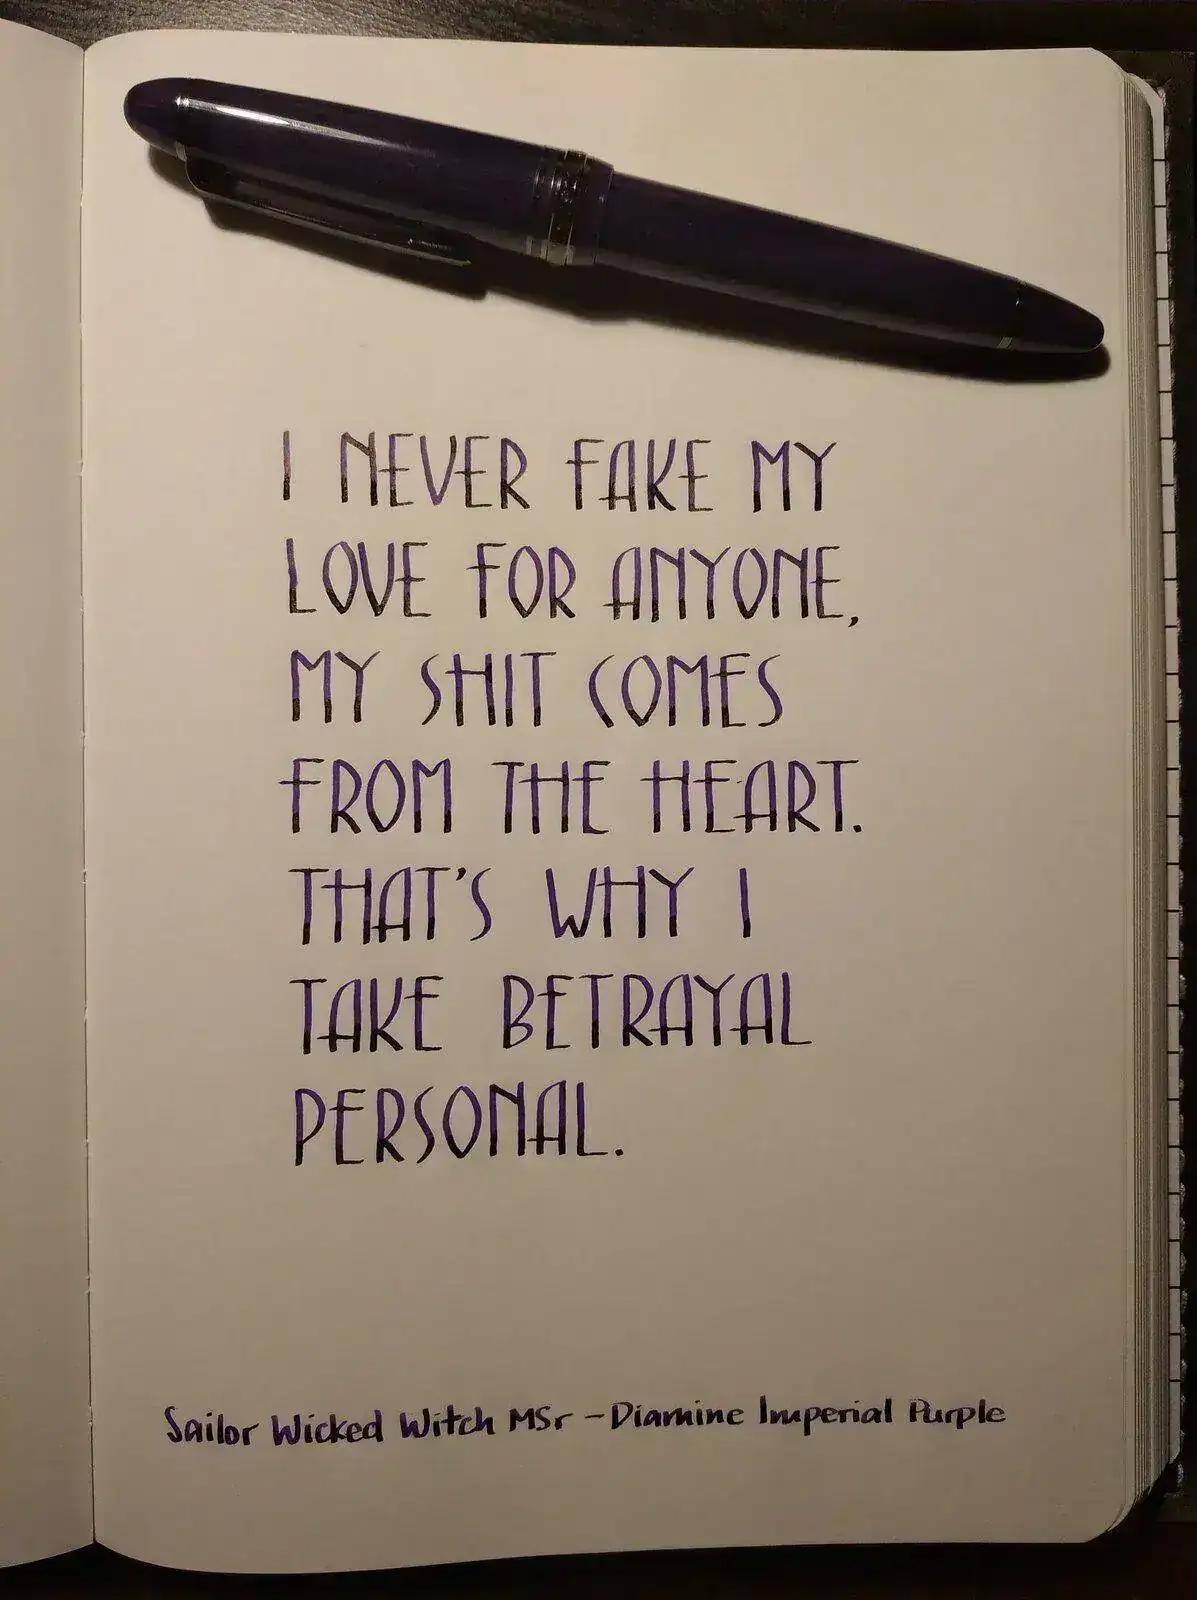 I NEVER FAKE MY
LOVE FOR ANYONE,
MY SHIT COMES
FROM THE HEART.
THAT'S WHY I
TAKE BETRAYAL
PERSONAL.
Sailor Wicked Witch MSr - Diamine Imperial Purple